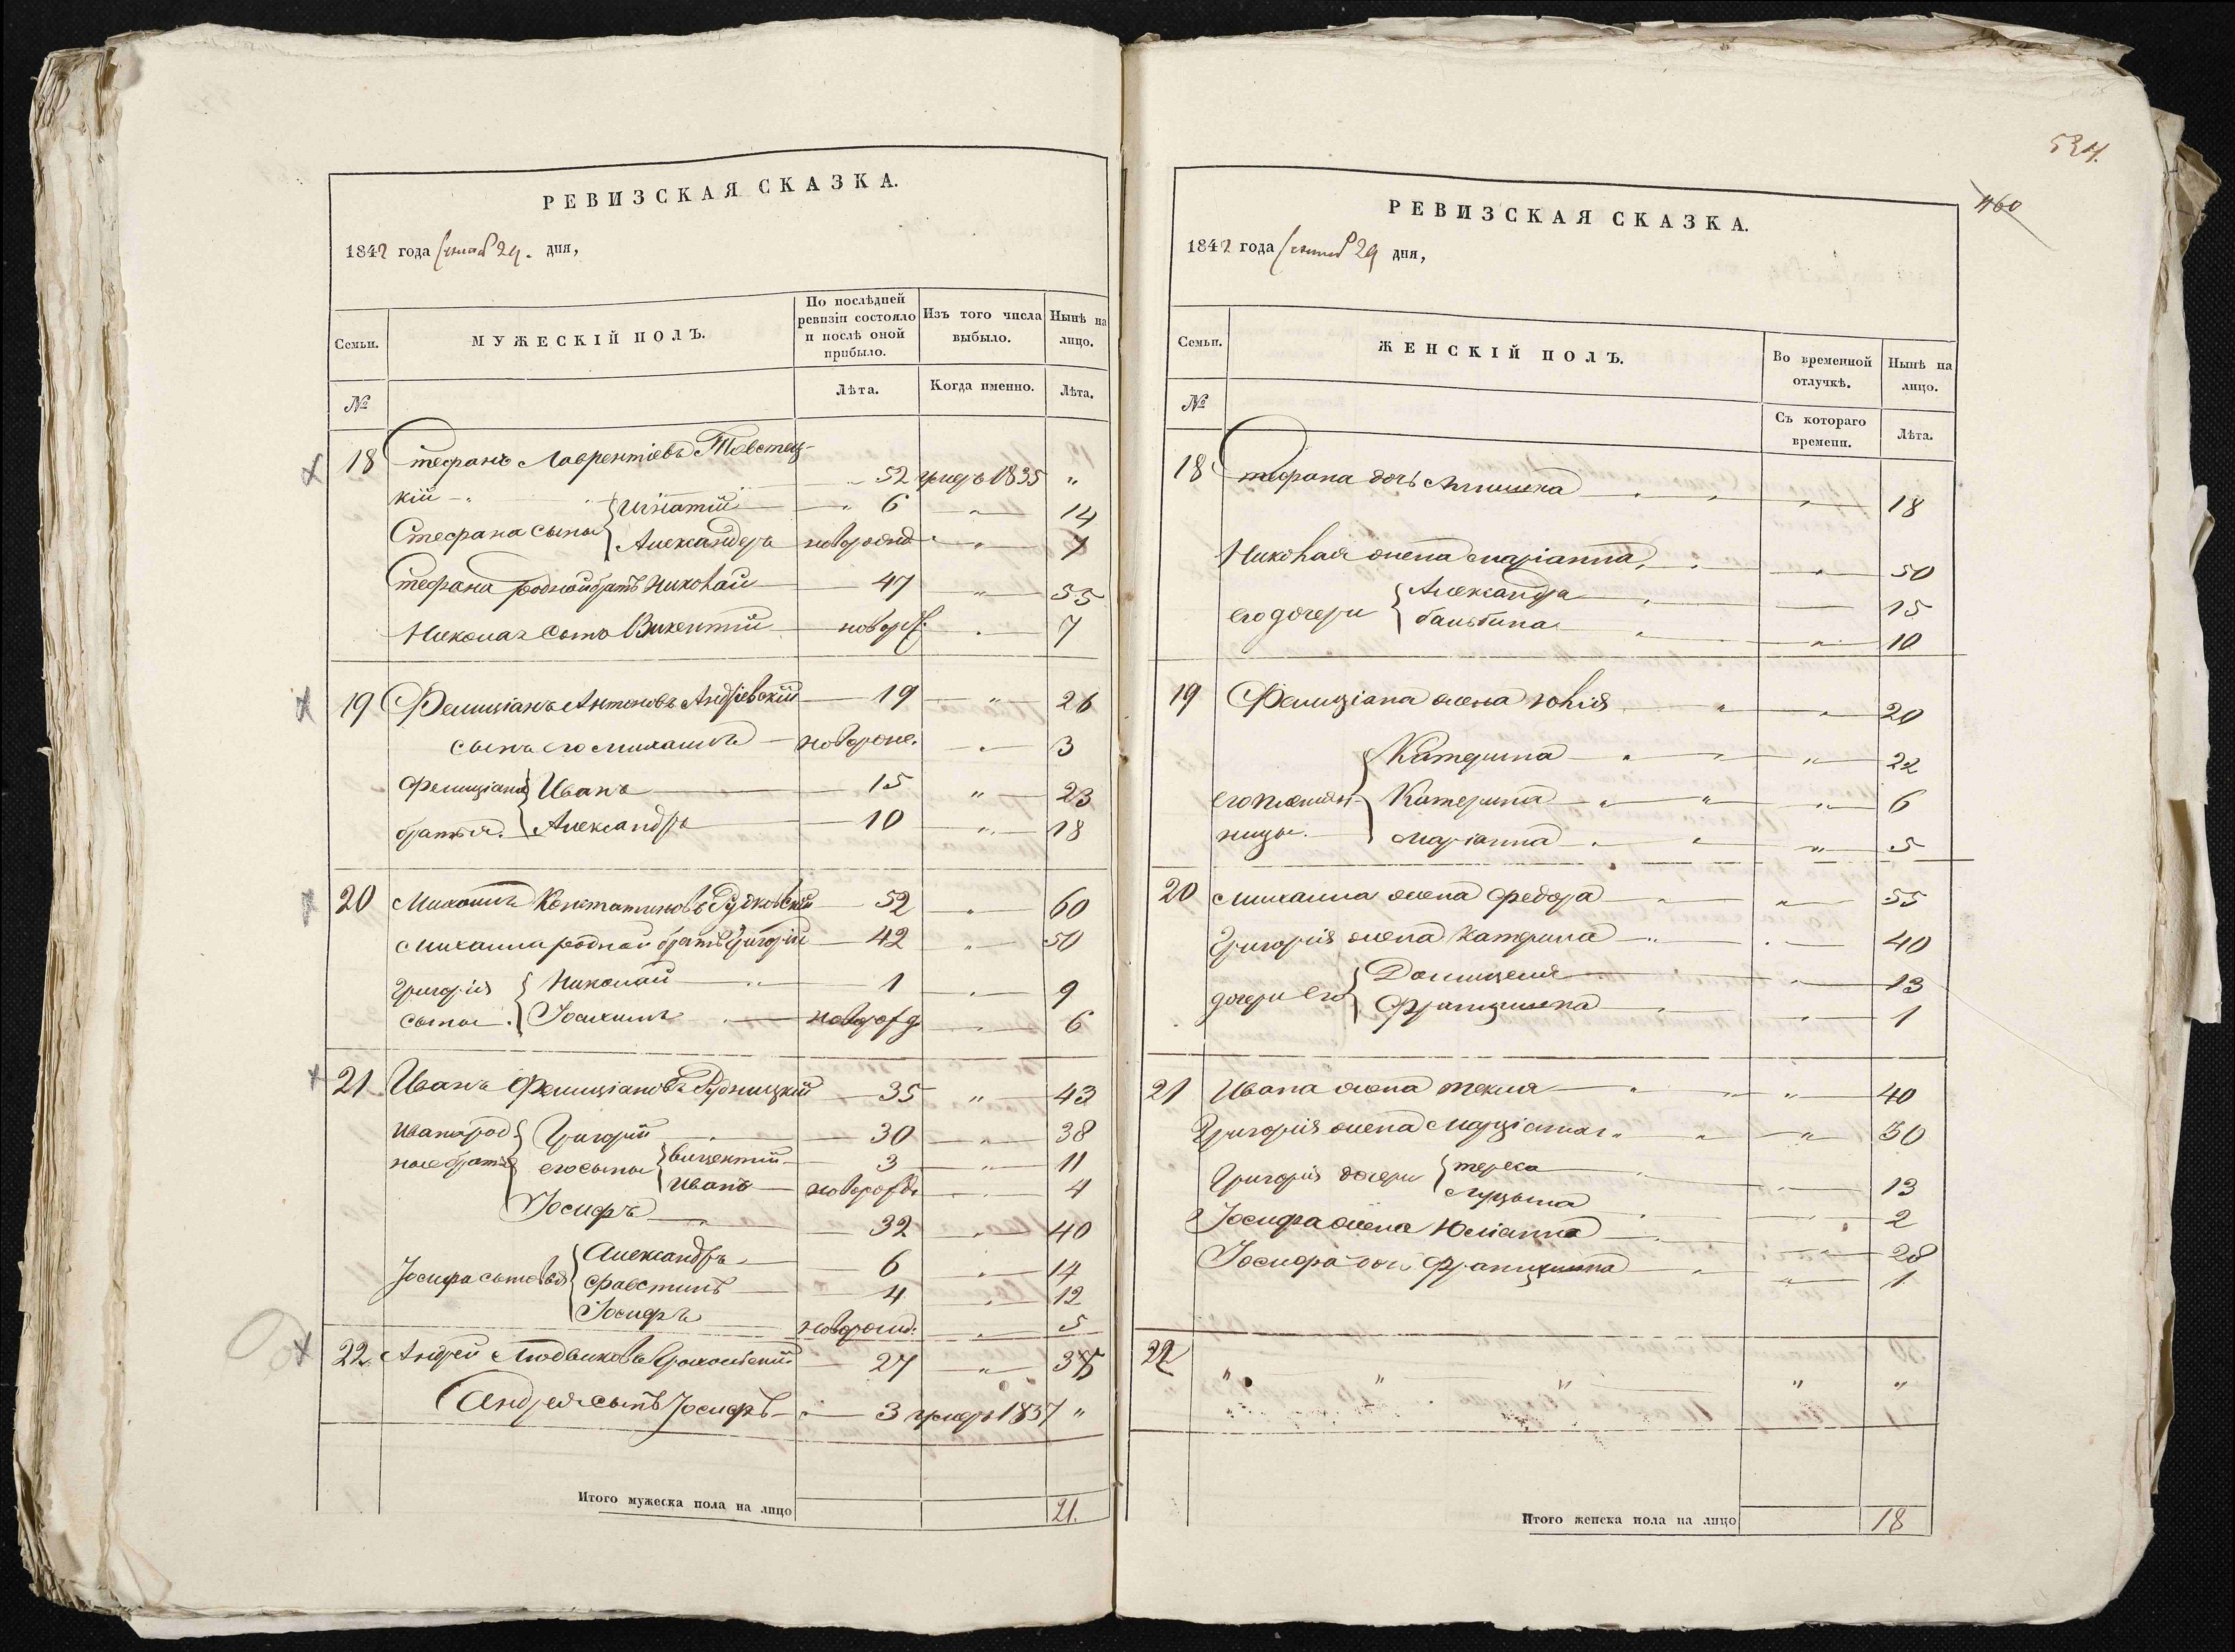 РЕВИЗСКАЯ СКАЗКА.
1842 года 29. дня,
Семьи.
МУЖЕСКІЙ ПОЛЪ.
По послѣдней
ревизіи состояло
и послѣ оной
прибыло.
Изъ того числа
выбыло.
Нынѣ на
лицо.
№
Лѣта.
Когда именно.
Лѣта.
18 Стефанъ Лаврентіевъ
кій 52 1835 "
Стефана сыны { Игнатій 6 " 14
Александеръ новорожд. " 7
Стефана родной братъ Николай 47 " 55
Николая сынъ Викентій новорж. " 7
19 Фелиціанъ Антоновъ Андріевскій 19 " 26
сынъ его Михаилъ новорожд. " 3
Фелиціана { Иванъ 15 " 23
братья. Александръ 10 " 18
20 Михаилъ Константиновъ 52 " 60
Михаила родной братъ Григорій 42 " 50
Григорія { Николай 1 " 9
сыны. Іоахимъ новорожд " 6
21 Иванъ Фелиціановъ Рудницкій 35 " 43
Ивана род { Григорій 30 " 38
ные братья его сыны { Вицентій 3 " 11
Иванъ новорожд. " 4
Іосифъ 32 " 40
Іосифа сыновья { Александръ 6 " 14
Фавстинъ 4 " 12
Іосифъ новорожд. " 5
22 Андрей Людвиковъ 27 " 35
Андрея сынъ Іосифъ 3 1837 "
Итого мужеска пола на лицо 21.
524.
460
РЕВИЗСКАЯ СКАЗКА.
1842 года 29 дня,
Семьи.
ЖЕНСКІЙ ПОЛЪ.
Во временной
отлучкѣ.
Нынѣ на
лицо.
№
Съ котораго
времени.
Лѣта.
18 Стефана дочь " 18
Николая жена Маріанна " 50
его дочери { Александра 15
Бальбина " 10
19 Фелиціана жена " 20
Катерина " 22
его племян { Катерина " 6
ницы. Маріанна " 5
20 Михаила жена Федора " 55
Григорія жена Катерина " 40
дочери его { Домицеля " 13
Францишка " 1
21 Ивана жена Текля " 40
Григорія жена " 30
Григорія дочери { Тереса " 13
Луцына 2
Іосифа жена Юліанна " 28
Іосифа дочь Францишка " 1
22 " " " " "
Итого женска пола на лицо 18